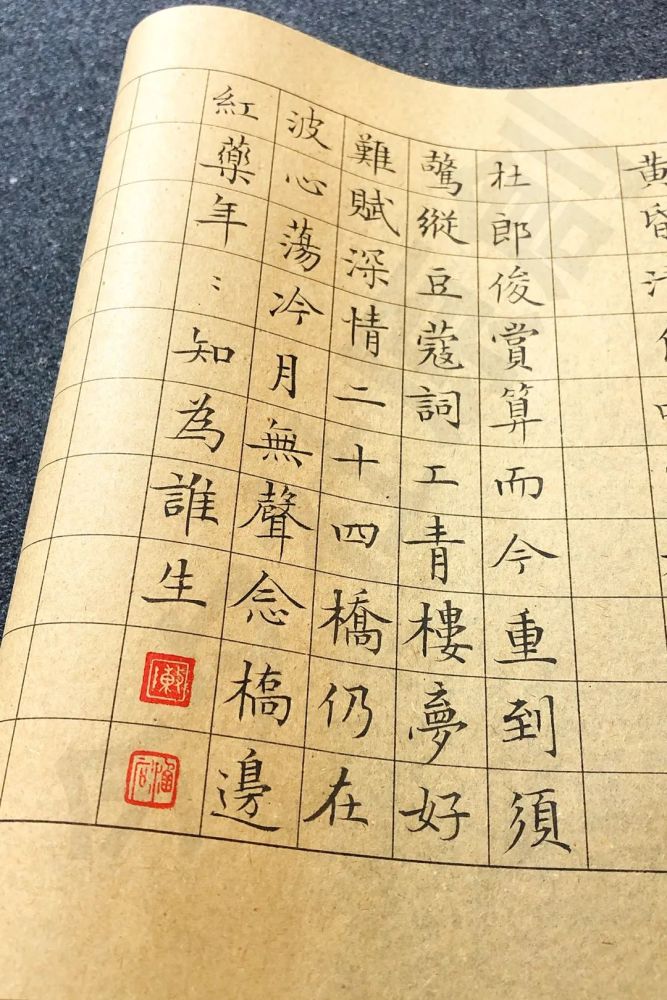 黄昏
杜郎俊賞算而今重到須
驚縱豆蔻詞工青樓夢好
難賦深情二十四橋仍在
波心蕩冷月無聲念橋邊
紅藥年〻知為誰生